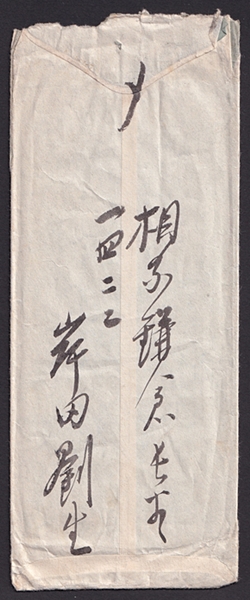 〆
相州鎌倉長谷
一四二二
岸田劉生